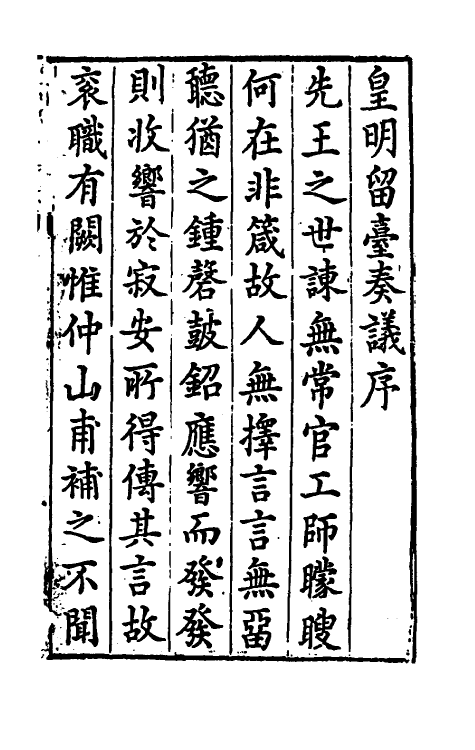 皇明留臺奏議序
先王之世諫無常官工師矇瞍
何在非箴故人無擇言言無㽞
聽猶之鍾磬鼓鉊應響而發發
則收響於寂安所得傳其言故
衮職有闕惟仲山甫補之不聞